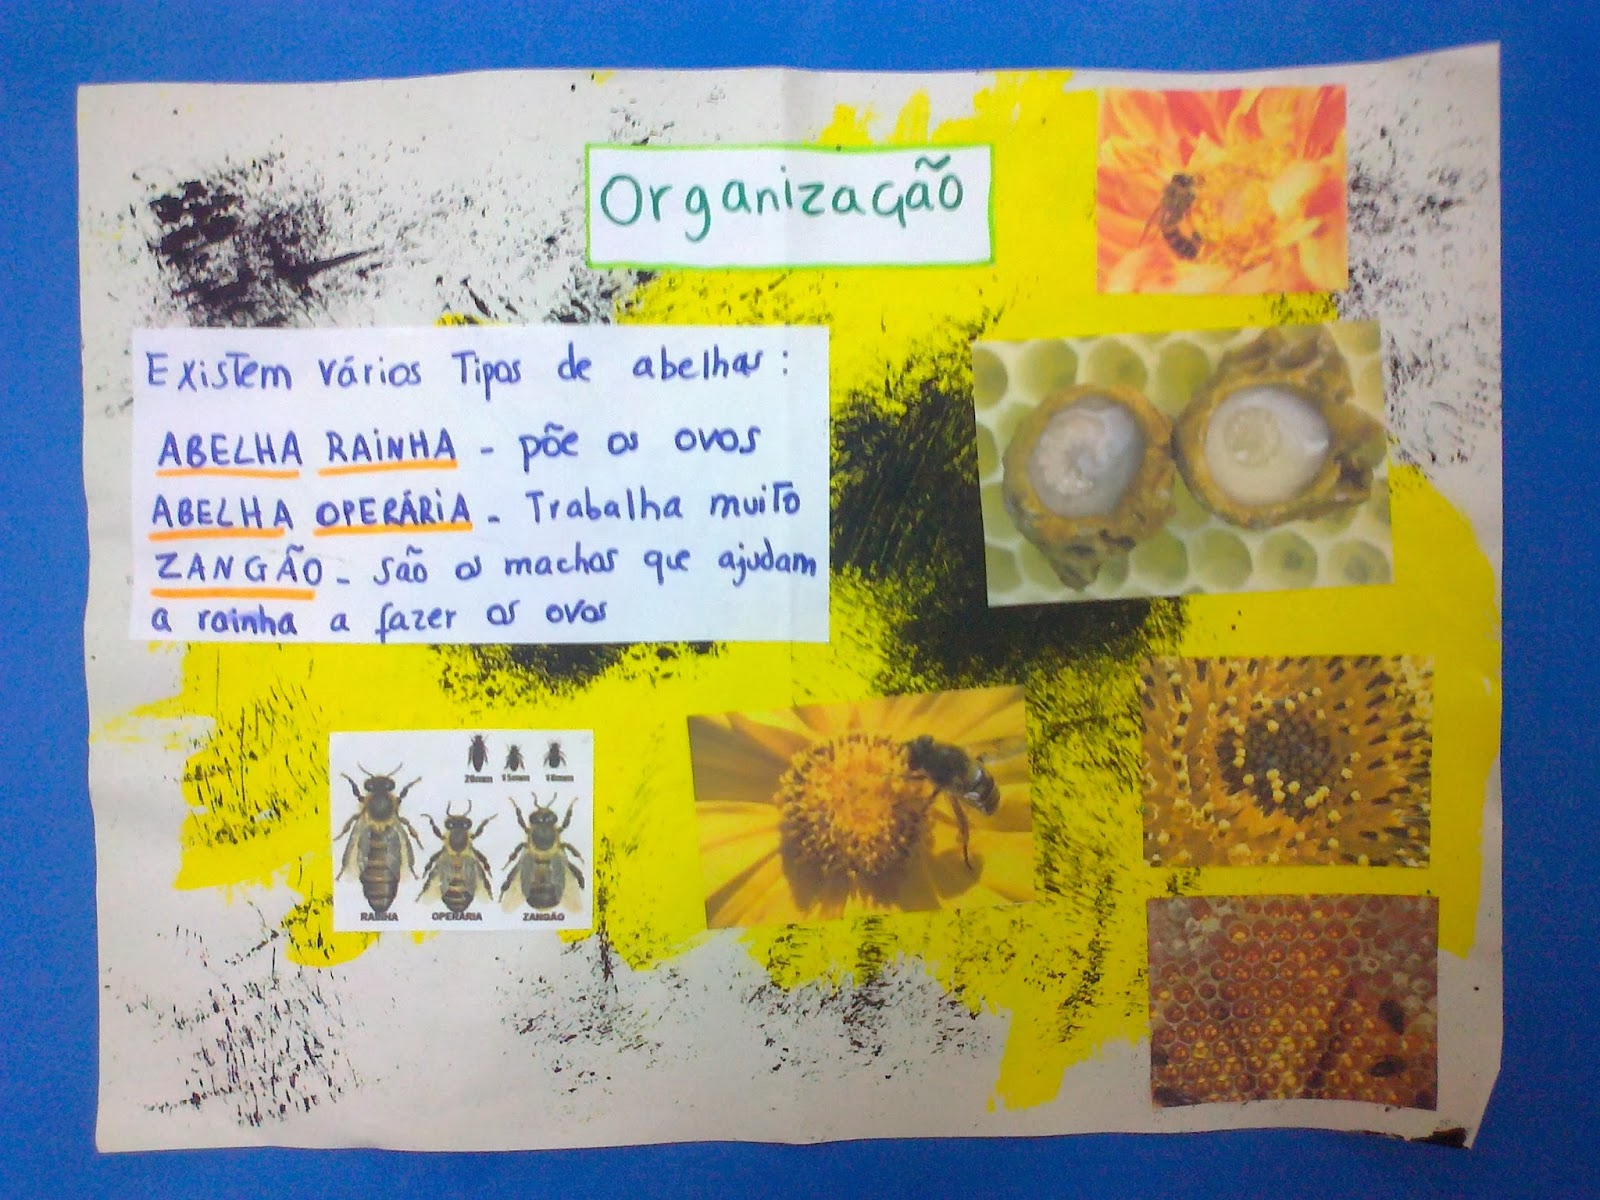 Organização
Existem vários Tipos de abelhas:
ABELHA RAINHA - põe os ovos
ABELHA OPERÁRIA - Trabalha muito
ZANGÃO - são os machos que ajudam
a rainha a fazer os ovos
20mm 15mm 18mm
RAINHA OPERÁRIA ZANGÃO